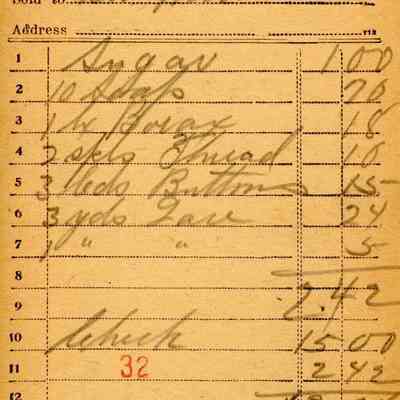 Sold to
Address
1 Sugar 1 00
2 10 Soap 70
3 1 Borax 18
4 2 spls Thread 10
5 3 cds Buttons 15
6 3 yds Lace 24
7 1 " " 5
8 2.42
9
10 Check 15 00
11 32 2 42
12